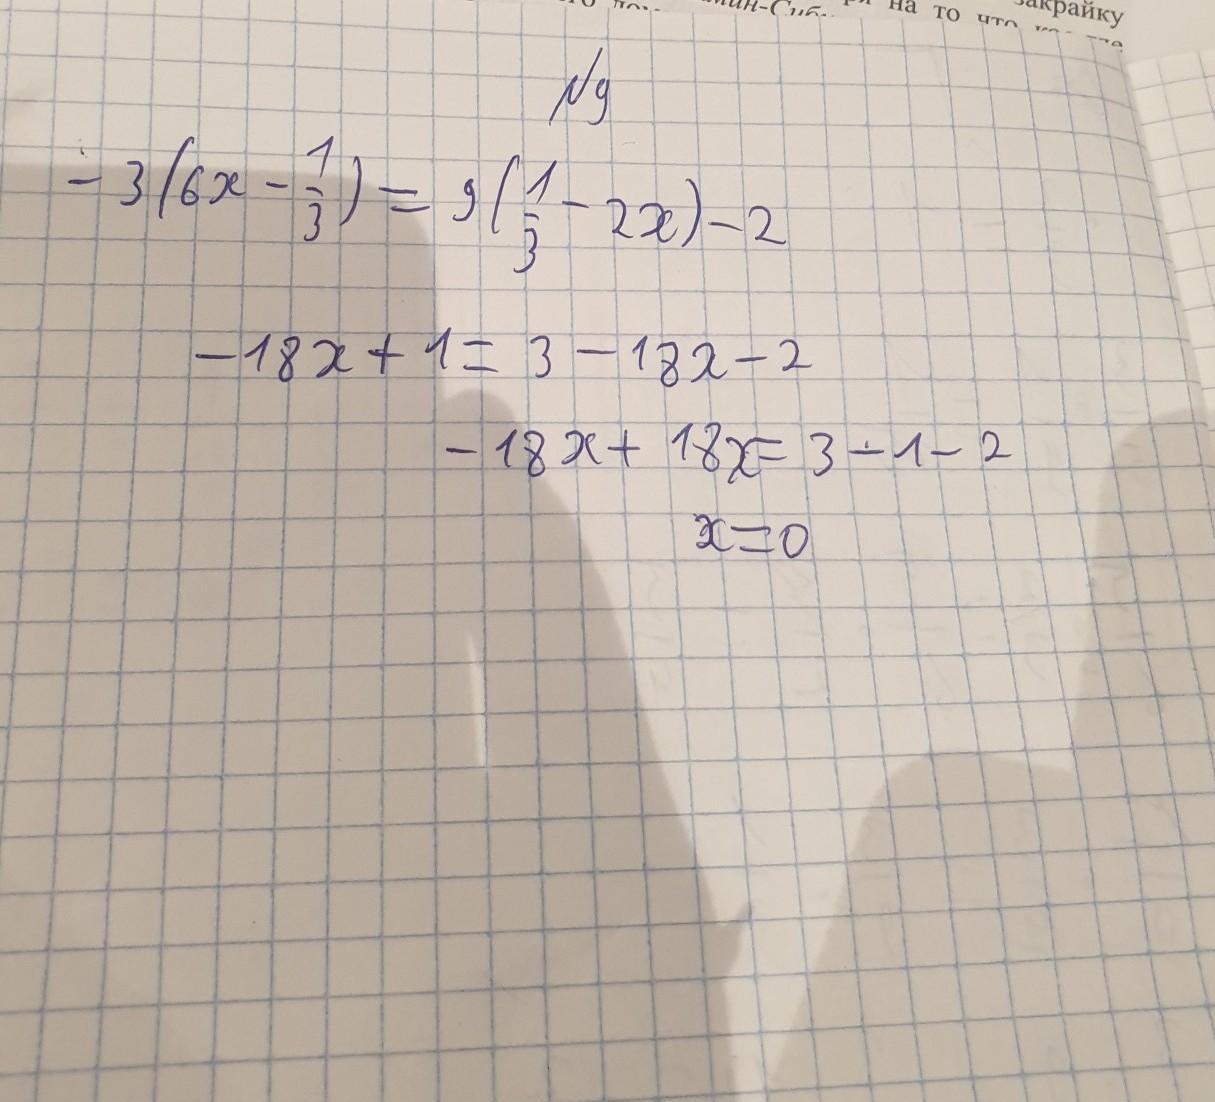 закрайку
на то что
№9
-3(6x - 1/3) = 9(1/3 - 2x) - 2
-18x + 1 = 3 - 18x - 2
-18x + 18x = 3 - 1 - 2
x = 0